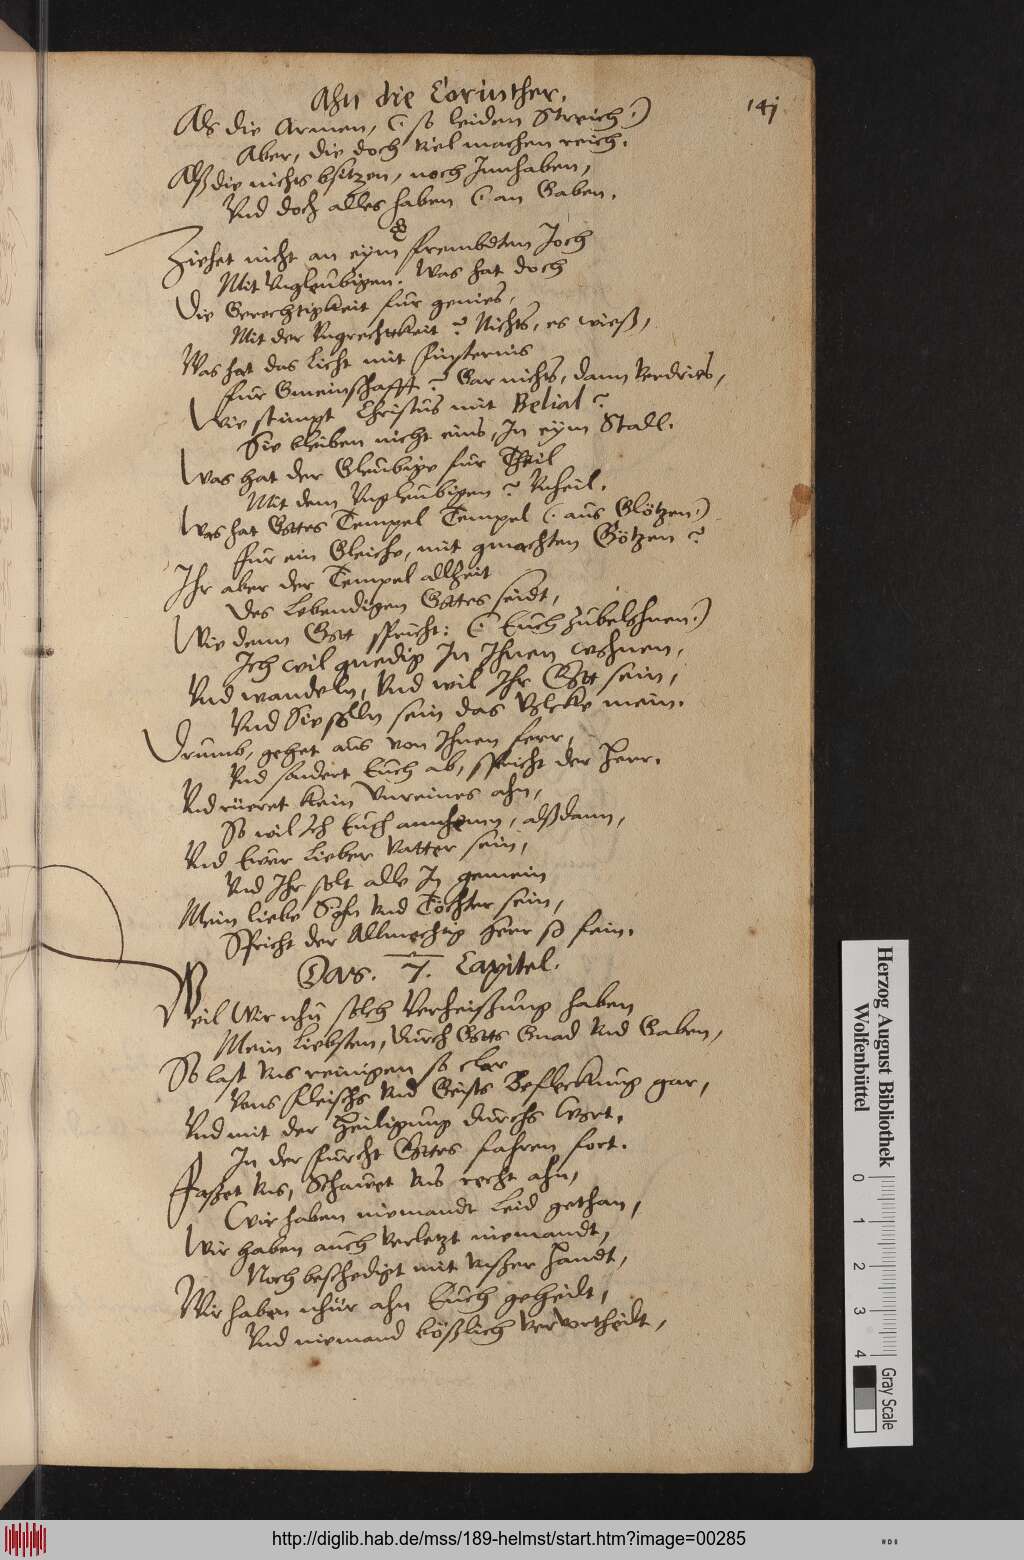 Ahn die Corinther.
141
Als die Armen, (: so leiden Streich :)
Aber, die doch viel machen reich.
Alß die nichts bsitzen, noch Innhaben,
Vnd doch alles haben (: an Gaben.
Ziehet nicht an eym frembdten Joch
Mit Vngleubigen. Was hat doch
Die Gerechtigkeit für genies,
Mit der Vngrechtkeit? Nichts, es wieß,
Was hat das Licht mit Finsternis
für Gmeinschafft? Gar nichts, dann Verdries,
Wie stimpt Christus mit Belial?
Sie bleiben nicht eins, In eym Stall.
Was hat der Gleubige für Theil
Mit dem Vngleubigen? Vnheil.
Was hat Gottes Tempel Tempel (: aus Glötzen :)
für ein Gleiche, mit gmachten Götzen?
Ihr aber der Tempel allzeit
Des Lebendigen Gottes seidt,
Wie denn Gott spricht: (: Euch zubelohnen :)
Ich wil gnedig In Ihnen wohnen,
Vnd wandeln, Vnd wil Ihr Gott sein,
Vnd Sie solln sein das Volcke mein.
Drumb, gehet aus von Ihnen ferr,
Vnd sondert Euch ab, spricht der Herr.
Vnd rüeret kein Vnreines ahn,
So wil Ich Euch annhemn, alßdann,
Vnd Ewer Lieber Vatter sein,
Vnd Ihr solt alle In gemein
Mein liebe Söhn Vnd Töchter sein,
Spricht der Allmechtig Herr so fein.
Das. 7. Capitel.
Weil Wir nhu solch Verheißung haben
Mein Liebsten, durch Gotts Gnad Vnd Gaben,
So last Vns reinigen so clar
Vons Fleischs Vnd Geists Befleckung gar,
Vnd mit der Heiligung durchs Wort,
In der furcht Gottes fahren fort.
Faßet Vns, Schawet Vns recht ahn,
Wir haben niemandt Leid gethan,
Wir haben auch Verletzt niemandt,
Noch beschedigt mit Vnßer Handt,
Wir haben nhür ahn Euch geheilt,
Vnd niemand bößlich Vervortheilt,
Herzog August Bibliothek
Wolfenbüttel
0 1 2 3 4
Gray Scale
http://diglib.hab.de/mss/189-helmst/start.htm?image=00285